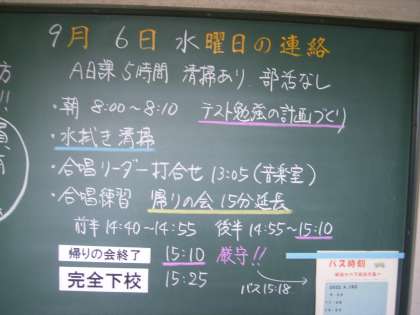 9月 6日 水曜日の連絡
A日課 5時間 清掃あり 部活なし
・朝 8:00〜8:10 テスト勉強の計画づくり
・水拭き清掃
・合唱リーダー打合せ 13:05(音楽室)
・合唱練習 帰りの会 15分延長
前半 14:40〜14:55 後半 14:55〜15:10
帰りの会終了 15:10 厳守!!
完全下校 15:25
バス15:18
バス時刻